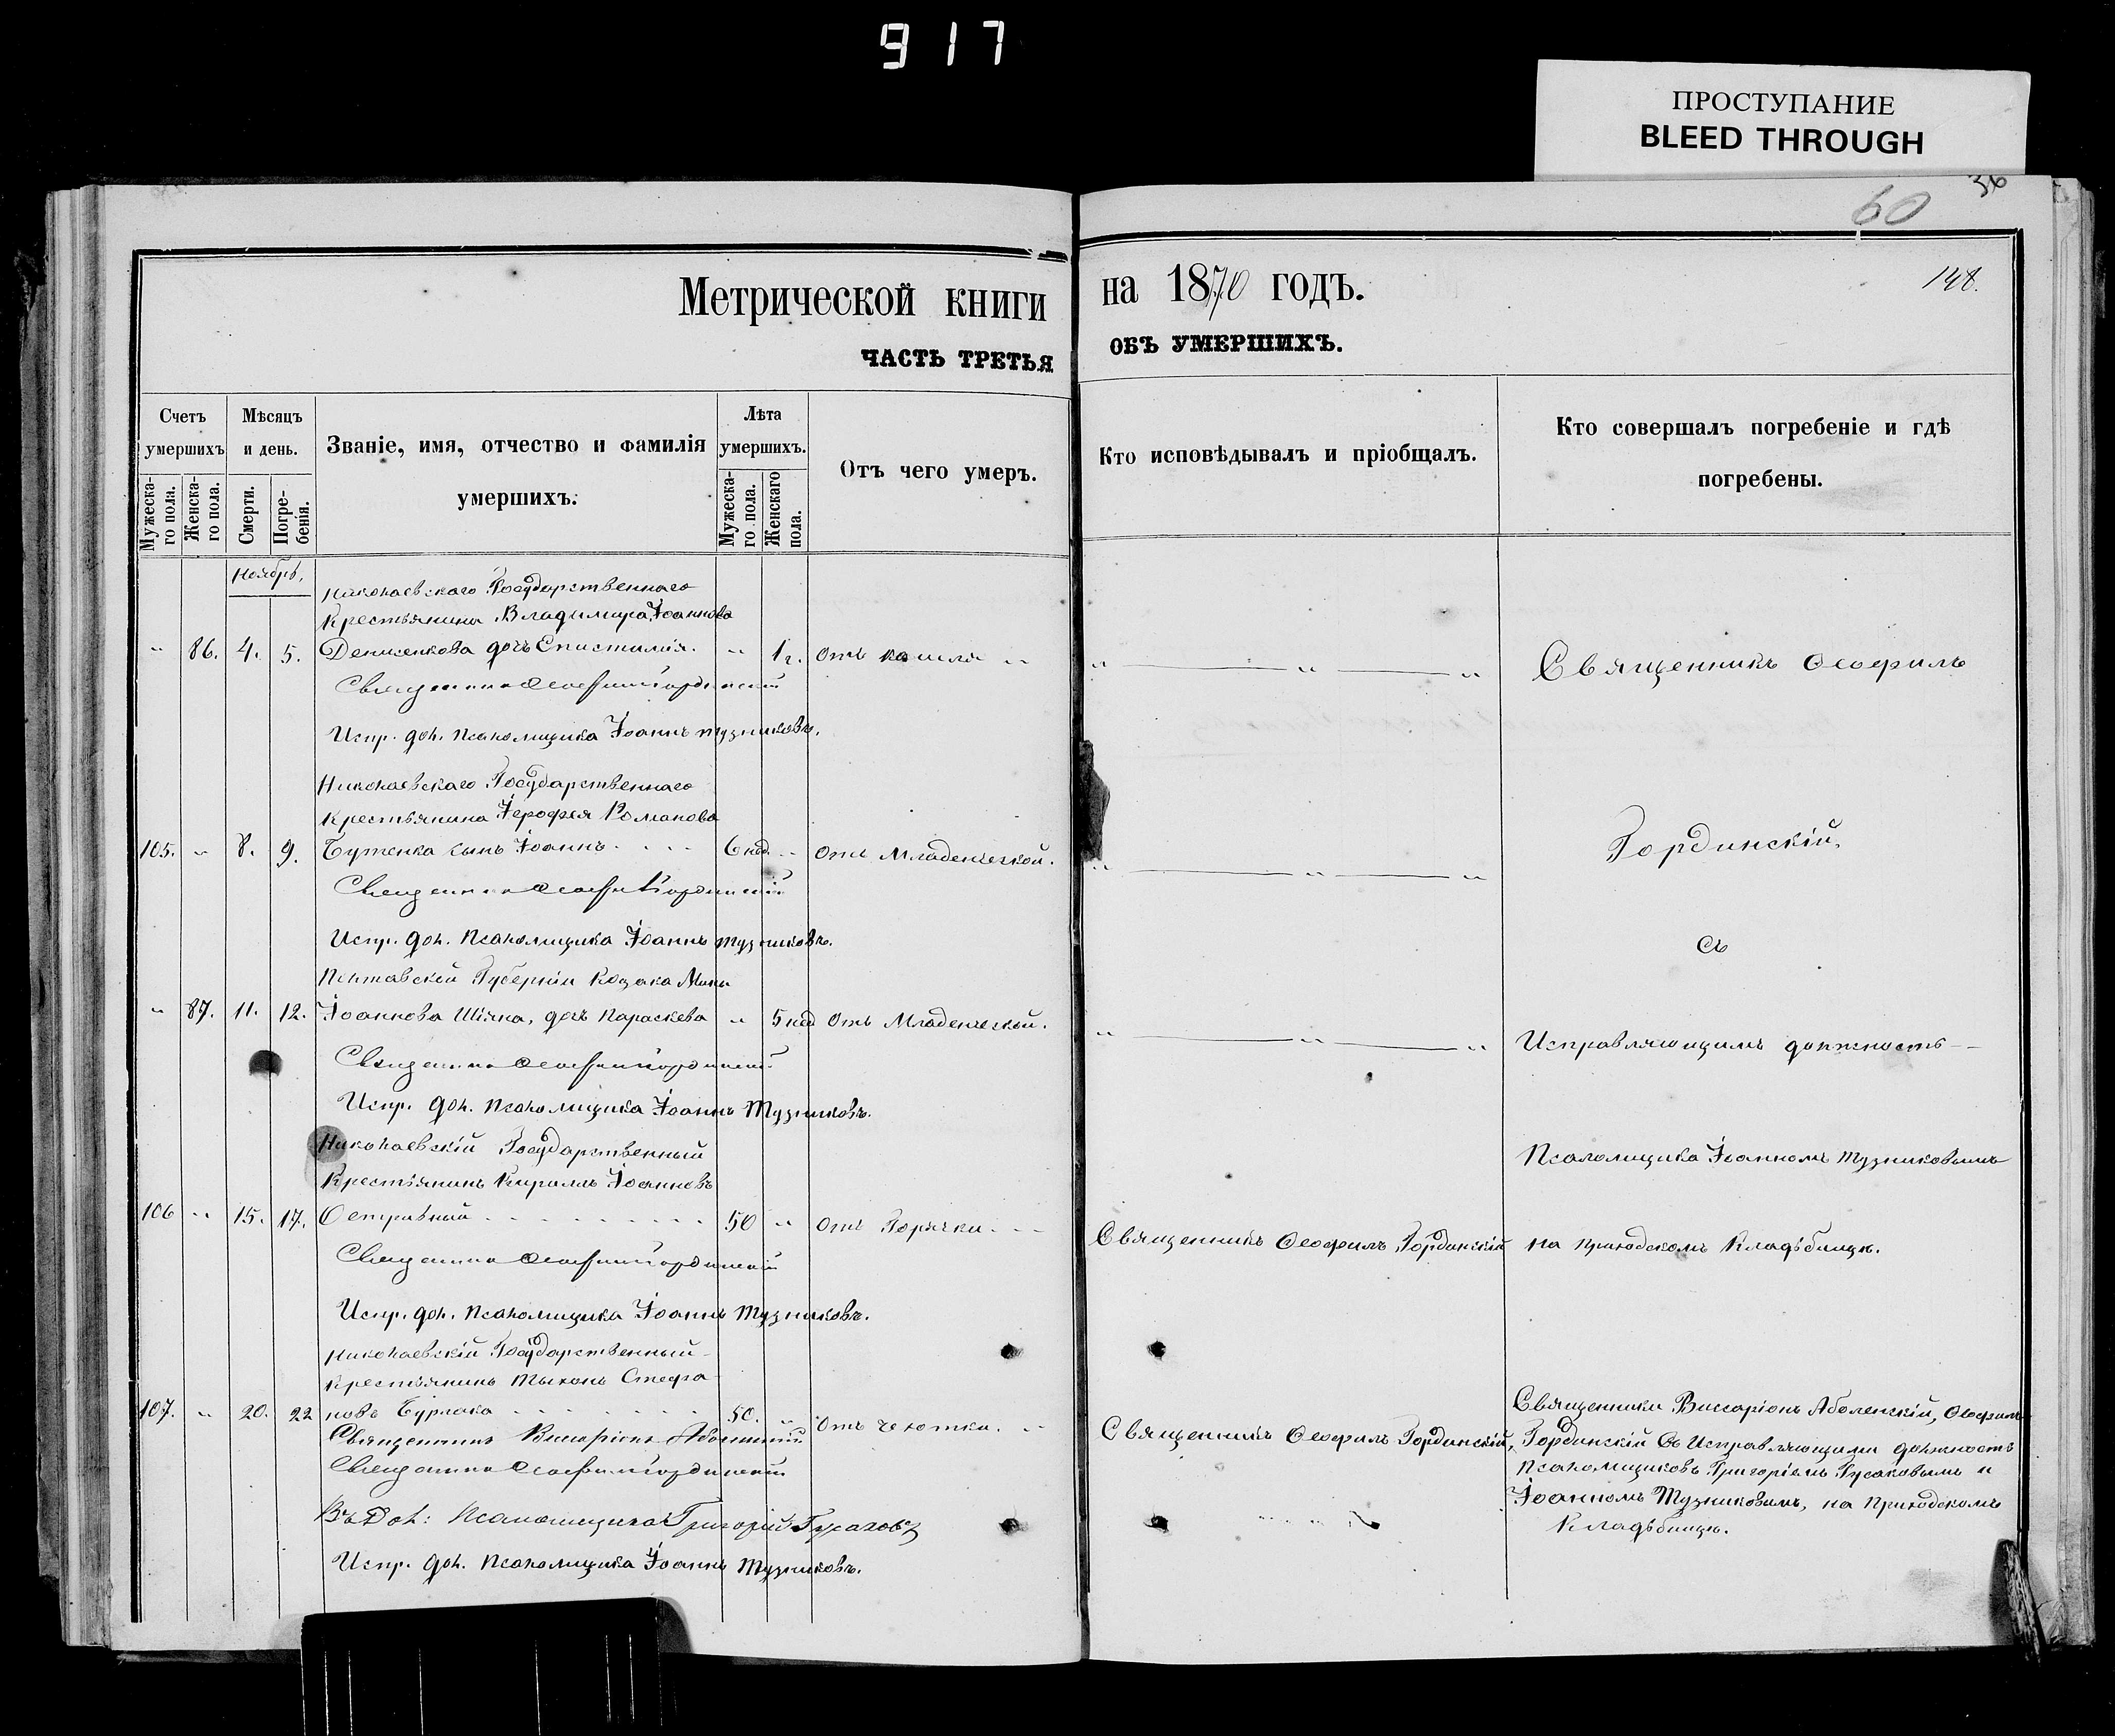 917
ПРОСТУПАНИЕ
BLEED THROUGH
36
60
148.
Метрической книги на 1870 годъ.
ЧАСТЬ ТРЕТЬЯ ОБЪ УМЕРШИХЪ.
Счетъ умершихъ
Мужеска-го пола.
Женска-го пола.
Мѣсяцъ и день.
Смерти.
Погре-бенія.
Званіе, имя, отчество и фамилія умершихъ.
Лѣта умершихъ.
Мужеска-го пола.
Женскаго пола.
Отъ чего умеръ.
Кто исповѣдывалъ и пріобщалъ.
Кто совершалъ погребеніе и гдѣ погребены.
Ноябрь.
Николаевскаго Государственнаго
Крестьянина Владимира Іоаннова
" 86. 4. 5. дочь Епистимія. " 1 г. Отъ кашля " " " " Священникъ Ѳеофилъ
Испр. дол. Псаломщика Іоаннъ Тузниковъ.
Николаевскаго Государственнаго
Крестьянина Іерофея Романова
105. " 8. 9. Бутенка сынъ Іоаннъ 6 нед. " Отъ Младенческой. " " " Гординскій,
Испр. дол. Псаломщика Іоаннъ Тузниковъ.
съ
Полтавской Губерніи Козака
" 87. 11. 12. Іоаннова дочь Параскева " 5 нед Отъ Младенческой. " " " Исправляющимъ должность
Испр. дол. Псаломщика Іоаннъ Тузниковъ.
Николаевскій Государственный
Крестьянинъ Кириллъ Іоанновъ
Псаломщика Іоанномъ Тузниковымъ
106 " 15. 17. 50 " Отъ Горячки Священникъ Ѳеофилъ Гординскій на приходскомъ Кладбищѣ.
Испр. дол. Псаломщика Іоаннъ Тузниковъ.
Николаевскій Государственный
Крестьянинъ Тихонъ Стефа
107. " 20. 22 новъ Бурлака 50. " Отъ чахотки. Священникъ Ѳеофилъ Гординскій,
Священники Виссаріонъ Аболенскій, Ѳеофилъ
Гординскій Съ Исправляющими должность
Псаломщиковъ Григоріемъ Гусаковымъ и
Іоанномъ Тузниковымъ, на приходскомъ
Кладбищѣ.
Въ Дол: Псаломщика Григорій Гусаковъ
Испр. дол. Псаломщика Іоаннъ Тузниковъ.